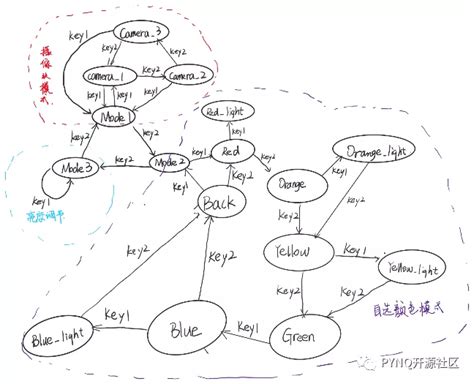 Camera_3
key1
key2
key2
摄像头模式
camera_1
key2
Camera_2
key1
key1
key1
Mode1
Red_light
key2
key2
key1
Orange_light
Mode3
key2
Mode2
key1
Red
key2
key1
key1
key1
亮度调节
Back
key2
Orange
key2
key2
Yellow
key1
Yellow_light
key2
key2
key1
key2
自选颜色模式
Blue_light
key1
Blue
key1
Green
PYNQ开源社区